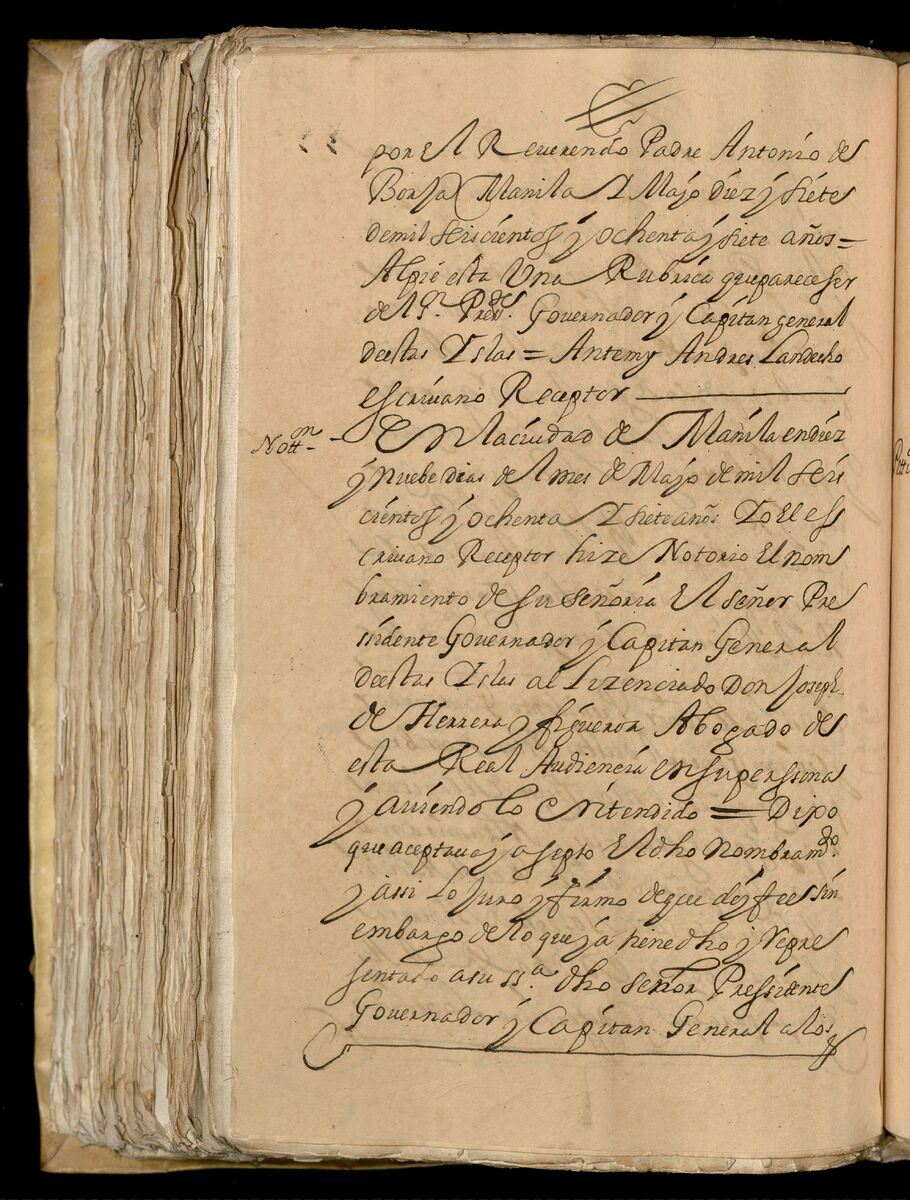 por El Reverendo Padre Antonio de
Borja Manila Y Mayo diez y siete
de mil seiscientos y ochenta y siete años =
Al pie esta Una Rubrica que parece ser
del Sr. Presdte. Governador y Capitan general
destas Yslas = Antemy Andres Landecho
escrivano Receptor
Nottn – En la ciudad de Manila en diez
y nuebe dias del mes de Mayo de mil seis
cientos y ochenta Y siete años Yo El es
crivano Receptor hize Notorio El nom
bramiento de su señoria El señor Pre
sidente Governador y Capitan General
destas Yslas al Lizenciado Don Joseph
de Herrera y figueroa Abogado de
esta Real Audiencia en su perssona
y aviendolo Entendido = Dixo
que aceptava y asepto El dho Nombramdo.
y assi Lo Juro y firmo de que doy fee sin
embargo de lo que ya tiene dho y repre
sentado a su ssa. dho señor Pressidente
Governador y Capitan General a los